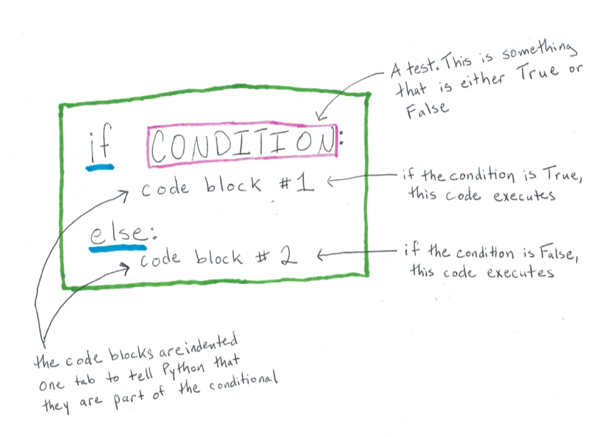 A test. This is something
that is either True or
False
if CONDITION:
code block #1
if the condition is True,
this code executes
else:
code block #2
if the condition is False,
this code executes
the code blocks are indented
one tab to tell Python that
they are part of the conditional